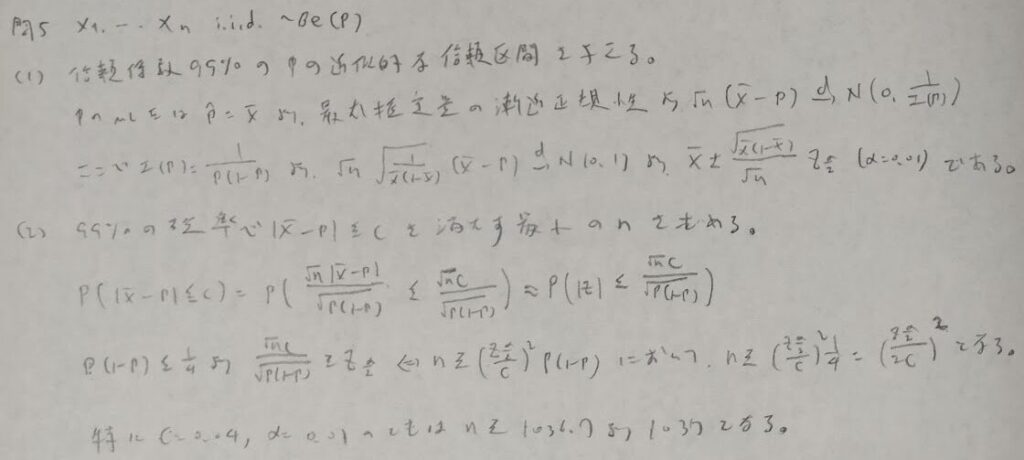 問5 X₁, … Xₙ i.i.d. ~Be(P)
(1) 信頼係数99%のPの近似的な信頼区間を与える。
PのMLEは p̂ = x̄ より、最尤推定量の漸近正規性より √n (x̄ − P) →d N(0, 1/I(P))
ここで I(P) = 1/(P(1−P)) より、√n √(1/(x̄(1−x̄))) (x̄ − P) →d N(0, 1) より x̄ ± √(x̄(1−x̄))/√n z_{α/2} (α=0.01) である。
(2) 99%の確率で |x̄ − P| ≤ C を満たす最小のnを求める。
P(|x̄ − P| ≤ C) = P( √n|x̄ − P|/√(P(1−P)) ≤ √n C/√(P(1−P)) ) ≈ P(|Z| ≤ √n C/√(P(1−P)))
P(1−P) ≤ 1/4 より √n C/√(P(1−P)) ≥ z_{α/2} ⇔ n ≥ (z_{α/2}/C)² P(1−P) において、n ≥ (z_{α/2}/C)² 1/4 = (z_{α/2}/2C)² となる。
特に C=0.04, α=0.01 のときは n ≥ 1036.7 より 1037となる。